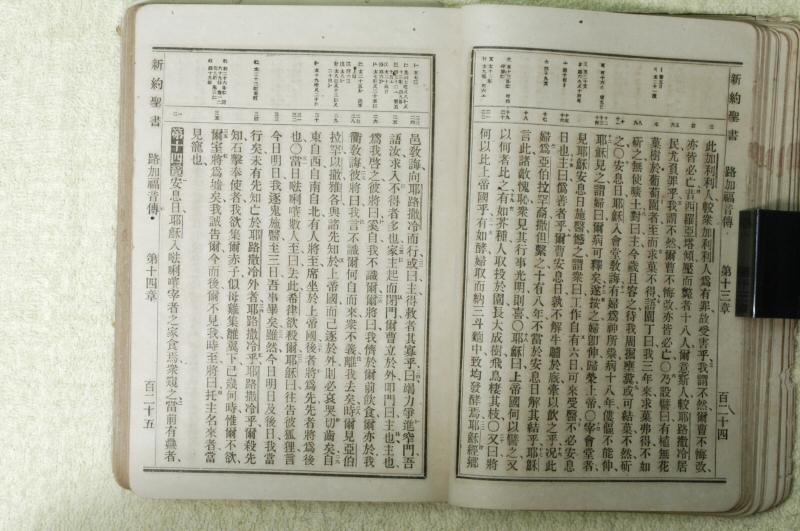 新約聖書 路加福音傳 第十三章 百二十四
此加利利人較衆加利利人爲有罪故受害乎我謂不然爾曹不悔改
亦皆必亡昔西羅亞塔傾壓而斃者十八人爾意斯人較耶路撒冷居
民尤負罪乎我謂不然爾曹不悔改亦皆必亡〇乃設譬曰有植無花
菓樹於葡萄園者至而求菓不得語園丁曰我三年來求菓弗得不如
斫之無使曠土對曰主今歲且容之待我周掘壅糞或可結菓不然斫
之〇安息日耶穌入會堂敎誨有婦爲神所祟病十八年傴僂不能伸
耶穌見之謂婦曰爾病可釋矣遂按之婦卽伸歸榮上帝〇宰會堂者
見耶穌安息日施醫憾之謂衆曰工作自有六日可來受醫不必安息
日也主曰僞善者乎爾曹安息日孰不解牛驢於廄牽以飲之乎况此
婦爲亞伯拉罕裔撒但繫之十有八年不當於安息日解其結乎耶穌
言此諸敵愧恥衆見其行事光明則喜〇耶穌曰上帝國何以譬之又
以何者比之有如芥種人取投於園長大成樹飛鳥棲其枝〇又曰將
何以比上帝國乎有如酵婦取而納三斗麵中致均發酵焉耶穌經鄉
邑敎誨向耶路撒冷而行或曰主得救者其寡乎曰竭力爭進窄門吾
語汝求入不得者多也家主起而閉門爾曹立於外叩門曰主也主也
爲我啓之彼將曰奚自我不識爾爾將曰我儕於爾前飲食爾亦於我
衢敎誨彼將曰我言不識爾何自而來衆不義離我去矣時爾見亞伯
拉罕以撒雅各與諸先知於上帝國而己逐於外則必哀哭切齒矣自
東自西自南自北有人將至席坐於上帝國後者將爲先先者將爲後
也〇當日𠵽唎㘔數人至曰去此希律欲殺爾耶穌曰往告彼狐狸言
今日明日我逐鬼施醫至三日吾事畢矣雖然今日明日及後日我當
行矣未有先知亡於耶路撒冷外者耶路撒冷乎耶路撒冷乎爾殺先
知石擊奉使者我欲集爾赤子似母雞集雛翼下已幾何時惟爾不欲
爾室將爲墟矣我誠告爾今而後爾不見我時至將曰托主名來者當
見寵也
第十四章 安息日耶穌入𠵽唎㘔宰者之家食焉衆窺之當前有蠱者
新約聖書 路加福音傳 第十四章 百二十五